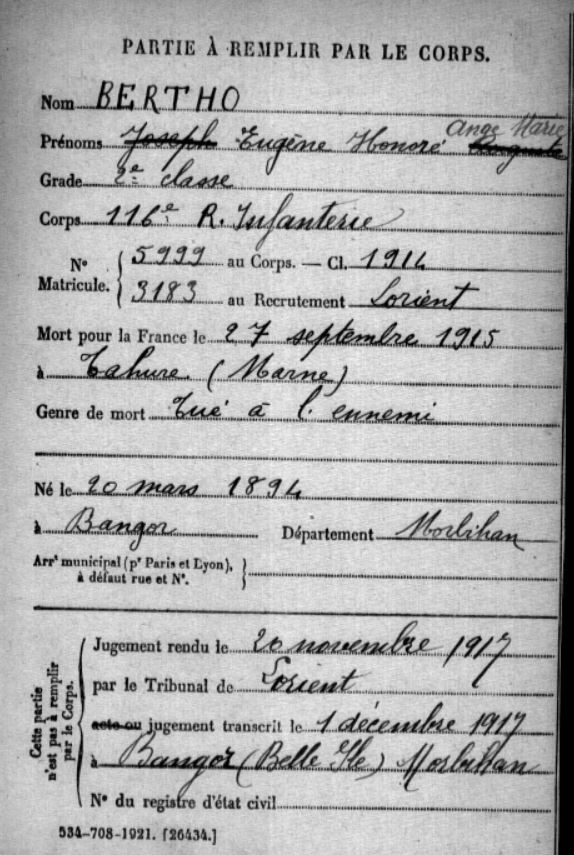 PARTIE À REMPLIR PAR LE CORPS.
Nom BERTHO
Ange Marie
Prénoms Joseph Eugène Honoré Auguste
Grade 2e classe
Corps 116e R. Infanterie
N° Matricule. 5999 au Corps. — Cl. 1914
3183 au Recrutement Lorient
Mort pour la France le 27 septembre 1915
à Tahure (Marne)
Genre de mort Tué à l'ennemi
Né le 20 mars 1894
à Bangor Département Morbihan
Arrt municipal (pr Paris et Lyon),
à défaut rue et N°.
Cette partie n'est pas à remplir par le Corps.
Jugement rendu le 20 novembre 1917
par le Tribunal de Lorient
acte ou jugement transcrit le 1 décembre 1917
à Bangor (Belle Ile) Morbihan
N° du registre d'état civil
534-708-1921. [26434.]